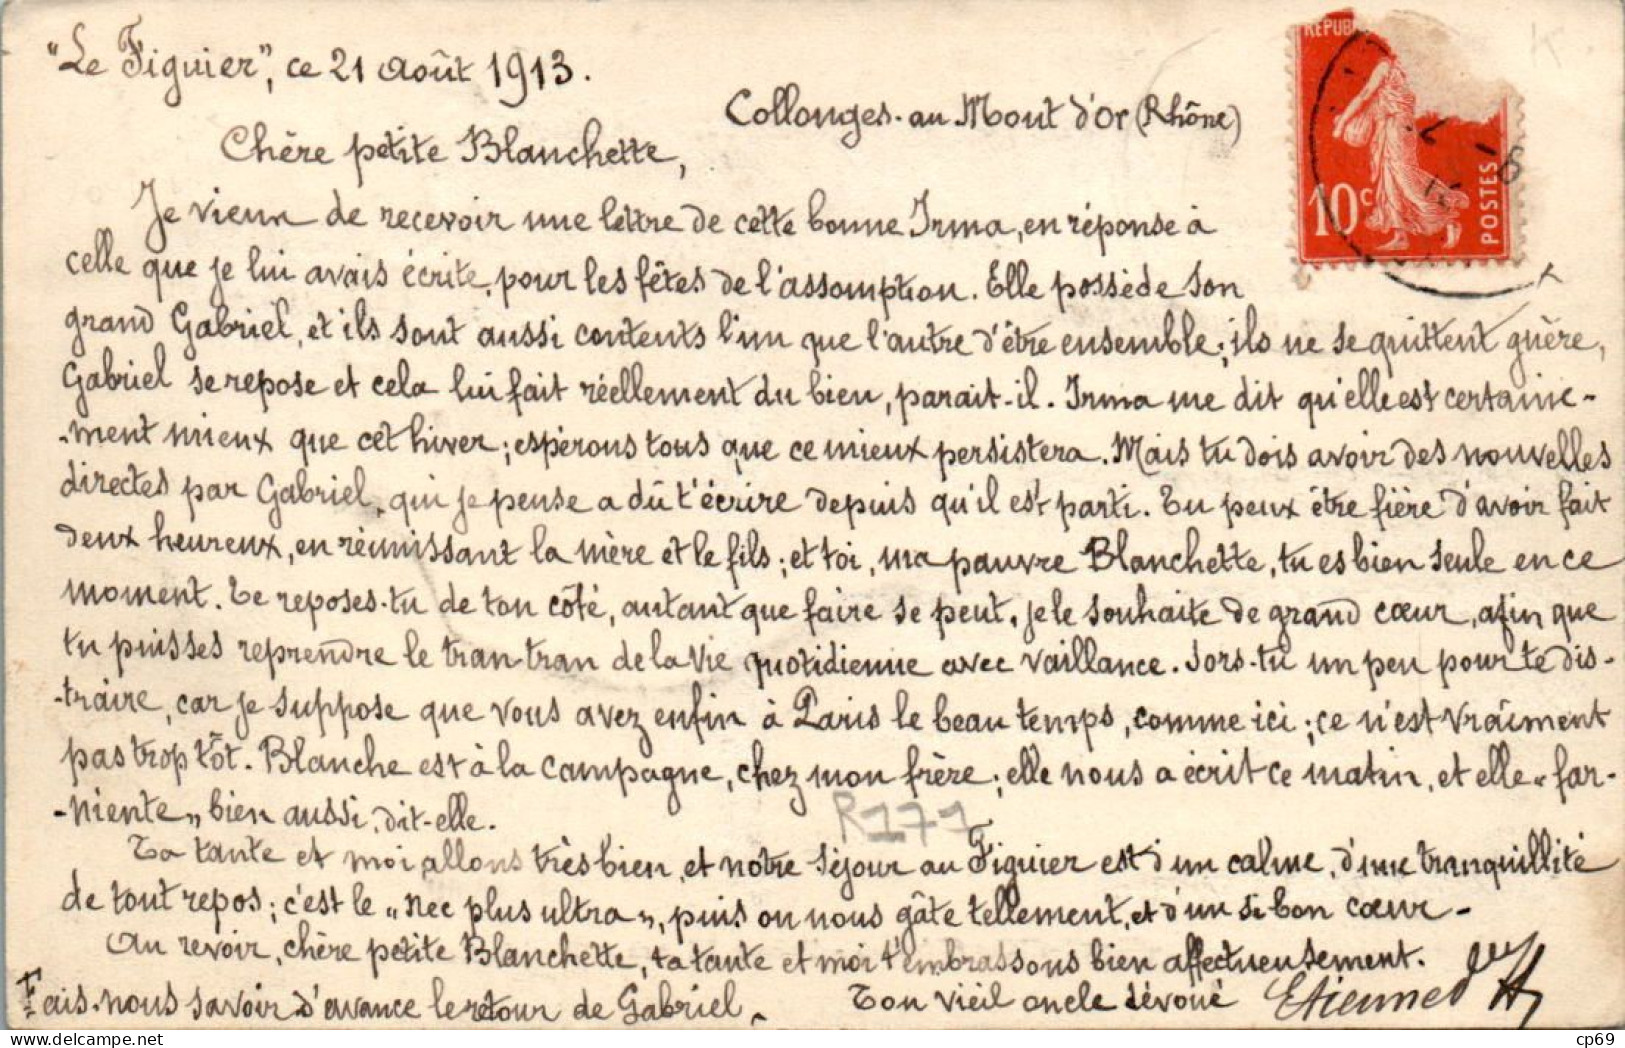 "Le Figuier", ce 21 Août 1913.
Collonges-au Mont d'Or (Rhône)
Chère petite Blanchette,
Je viens de recevoir une lettre de cette bonne Irma, en réponse à
celle que je lui avais écrite, pour les fêtes de l'assomption. Elle possède son
grand Gabriel, et ils sont aussi contents l'un que l'autre d'être ensemble; ils ne se quittent guère,
Gabriel se repose et cela lui fait réellement du bien, parait-il. Irma me dit qu'elle est certaine-
-ment mieux que cet hiver; espérons tous que ce mieux persistera. Mais tu dois avoir des nouvelles
directes par Gabriel, qui je pense a dû t'écrire depuis qu'il est parti. Tu peux être fière d'avoir fait
deux heureux, en réunissant la mère et le fils; et toi, ma pauvre Blanchette, tu es bien seule en ce
moment. Te reposes-tu de ton côté, autant que faire se peut, je le souhaite de grand cœur, afin que
tu puisses reprendre le tran-tran de la vie quotidienne avec vaillance. Sors-tu un peu pour te dis-
-traire, car je suppose que vous avez enfin à Paris le beau temps, comme ici; ce n'est vraiment
pas trop tôt. Blanche est à la campagne, chez mon frère; elle nous a écrit ce matin, et elle "far-
-niente" bien aussi, dit-elle.
R171
Ta tante et moi allons très bien, et notre séjour au Figuier est d'un calme, d'une tranquillité
de tout repos; c'est le "nec plus ultra", puis on nous gâte tellement, et d'un si bon cœur-
Au revoir, chère petite Blanchette, ta tante et moi t'embrassons bien affectueusement.
Fais-nous savoir d'avance le retour de Gabriel. Ton vieil oncle dévoué Etienne
REPUB
10c
POSTES
cp69